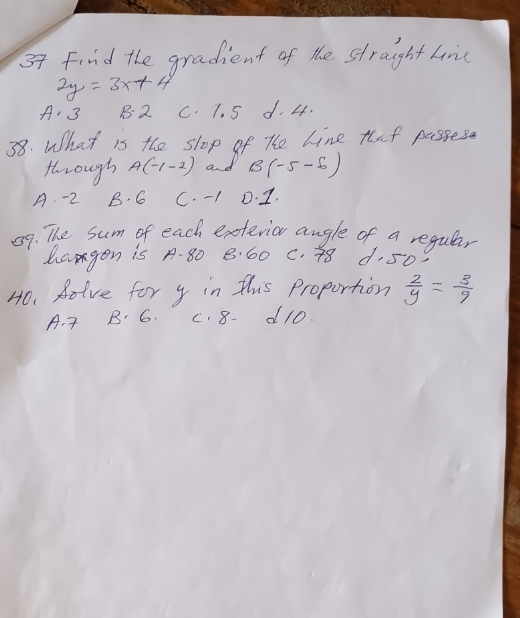 37 Find the gradient of the straight line
2y = 3x + 4
A. 3 B. 2 C. 1.5 d. 4.
38. What is the slop of the line that passese
through A(-1-2) and B(-5-6)
A. -2 B. 6 C. -1 D. 1.
39. The sum of each exterior angle of a regular
is A. 80 B. 60 C. 78 d. 50.
40. Solve for y in this proportion 2/y = 3/9
A. 7 B. 6. C. 8. d 10.